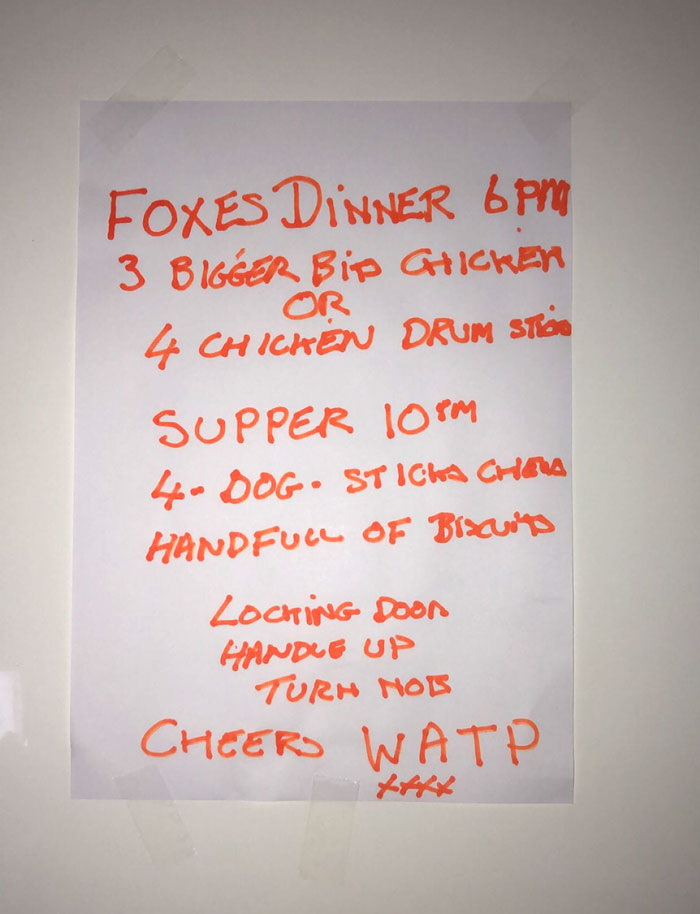 FOXES DINNER 6PM
3 BIGGER BIP CHICKEN
OR
4 CHICKEN DRUM STICS
SUPPER 10PM
4 - DOG - STICKS
HANDFULL OF BISCUITS
LOCKING DOOR
HANDLE UP
TURN NOB
CHEERS WATP
xxxx